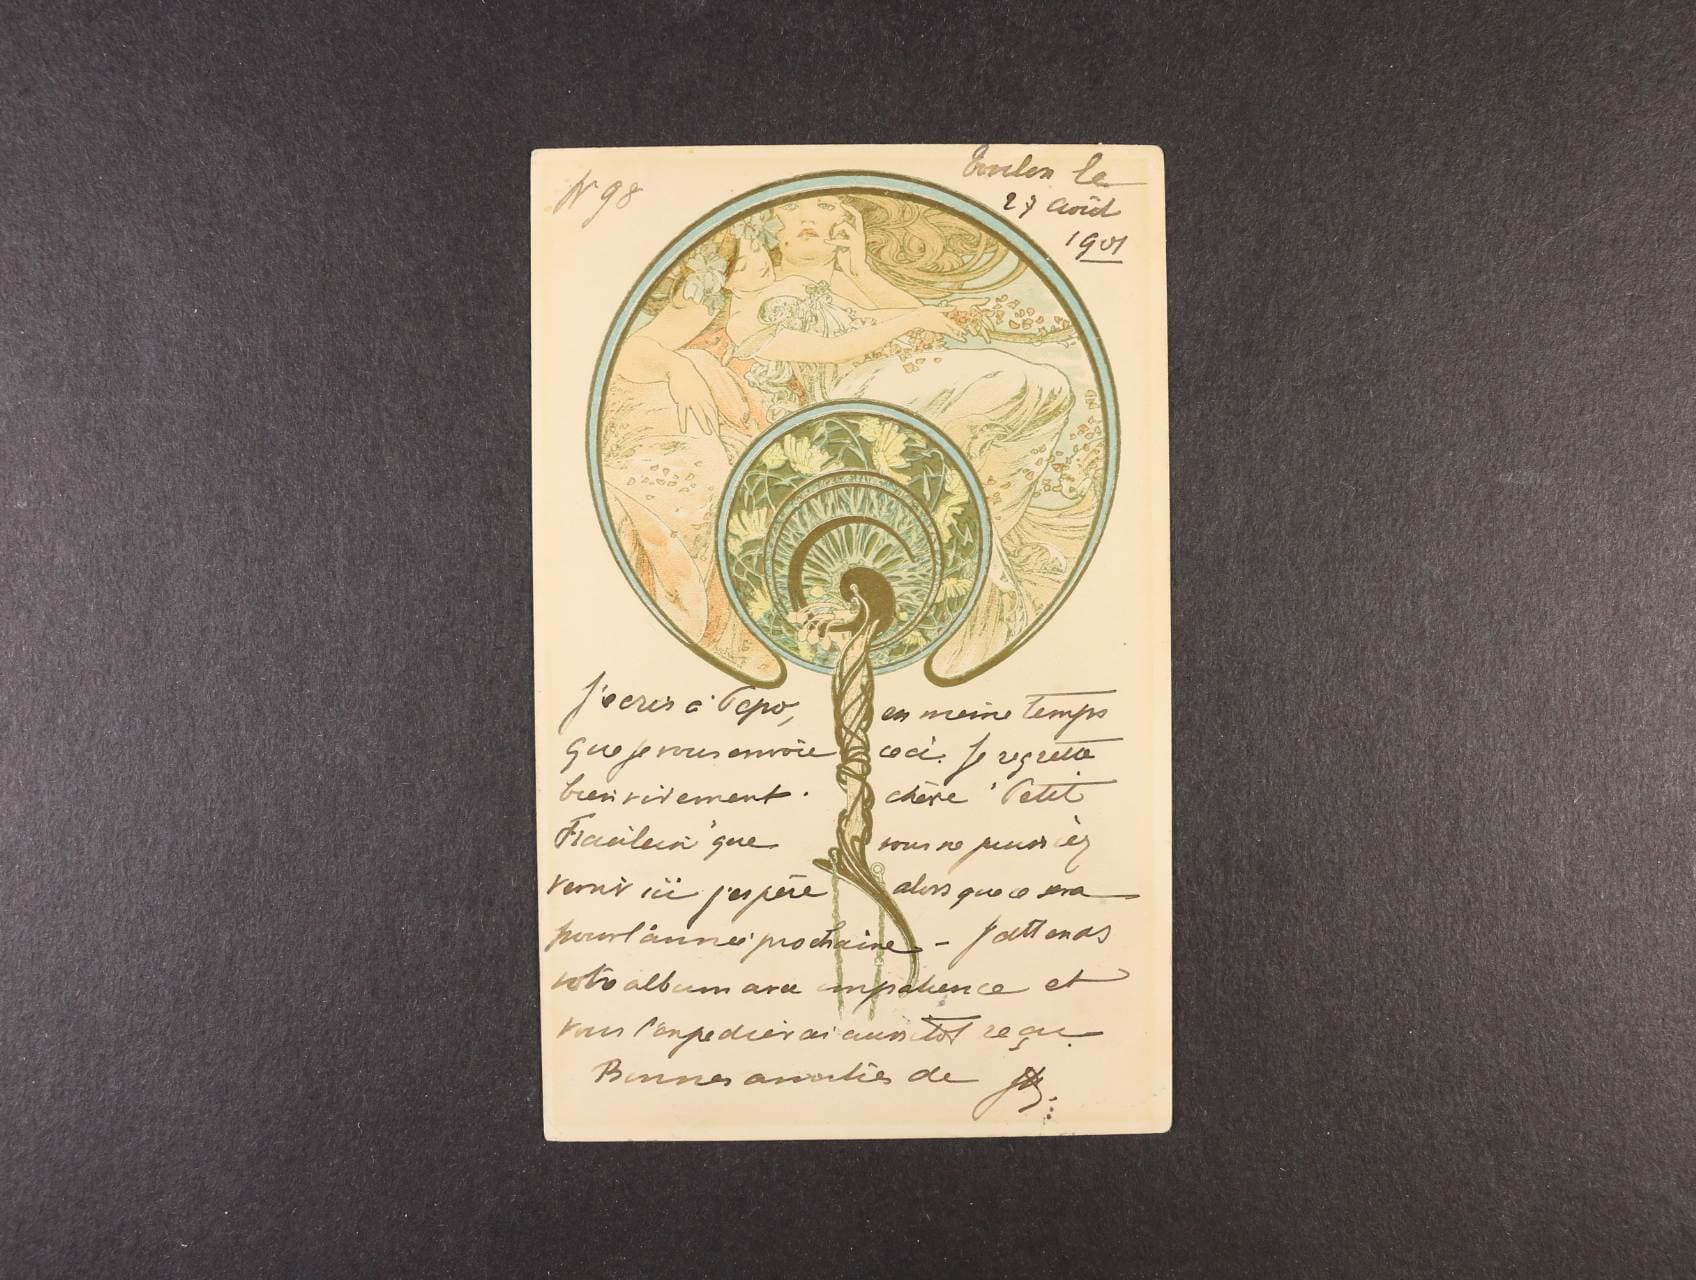 N 98
Toulon le
27 Août
1901
J'ecris à Papo, en meme temps
que je vous envoie ceci. Je regrette
bien vivement. chère "Petit
Fraulein" que vous ne pussiez
venir ici j'espère alors que ce sera
pour l'année prochaine - J'attends
votre album avec impatience et
vous l'expedierai aussitot reçu.
Bonnes amitiés de